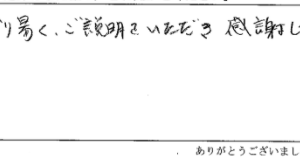 り易く、ご説明をいただき 感謝し
ありがとうございまし